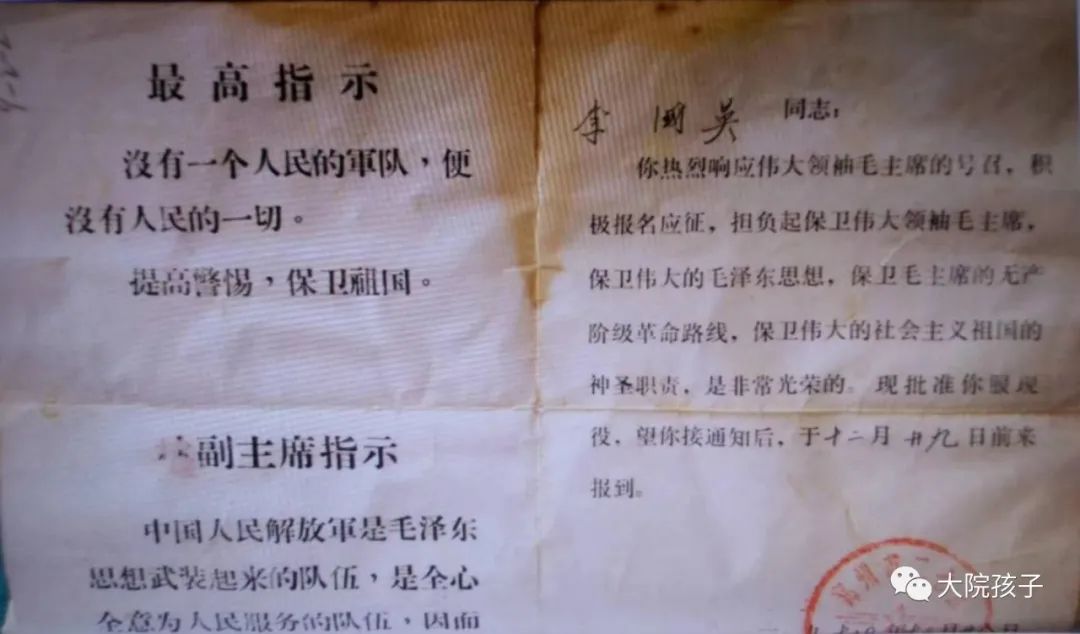 最高指示
沒有一个人民的軍队，便
沒有人民的一切。
提高警惕，保卫祖国。
副主席指示
中国人民解放軍是毛泽东
思想武装起来的队伍，是全心
全意为人民服务的队伍，因而
李國英 同志：
你热烈响应伟大领袖毛主席的号召，积
极报名应征，担负起保卫伟大领袖毛主席，
保卫伟大的毛泽东思想，保卫毛主席的无产
阶级革命路线，保卫伟大的社会主义祖国的
神圣职责，是非常光荣的。现批准你服现
役，望你接通知后，于十二月廿九日前来
报到。
大院孩子